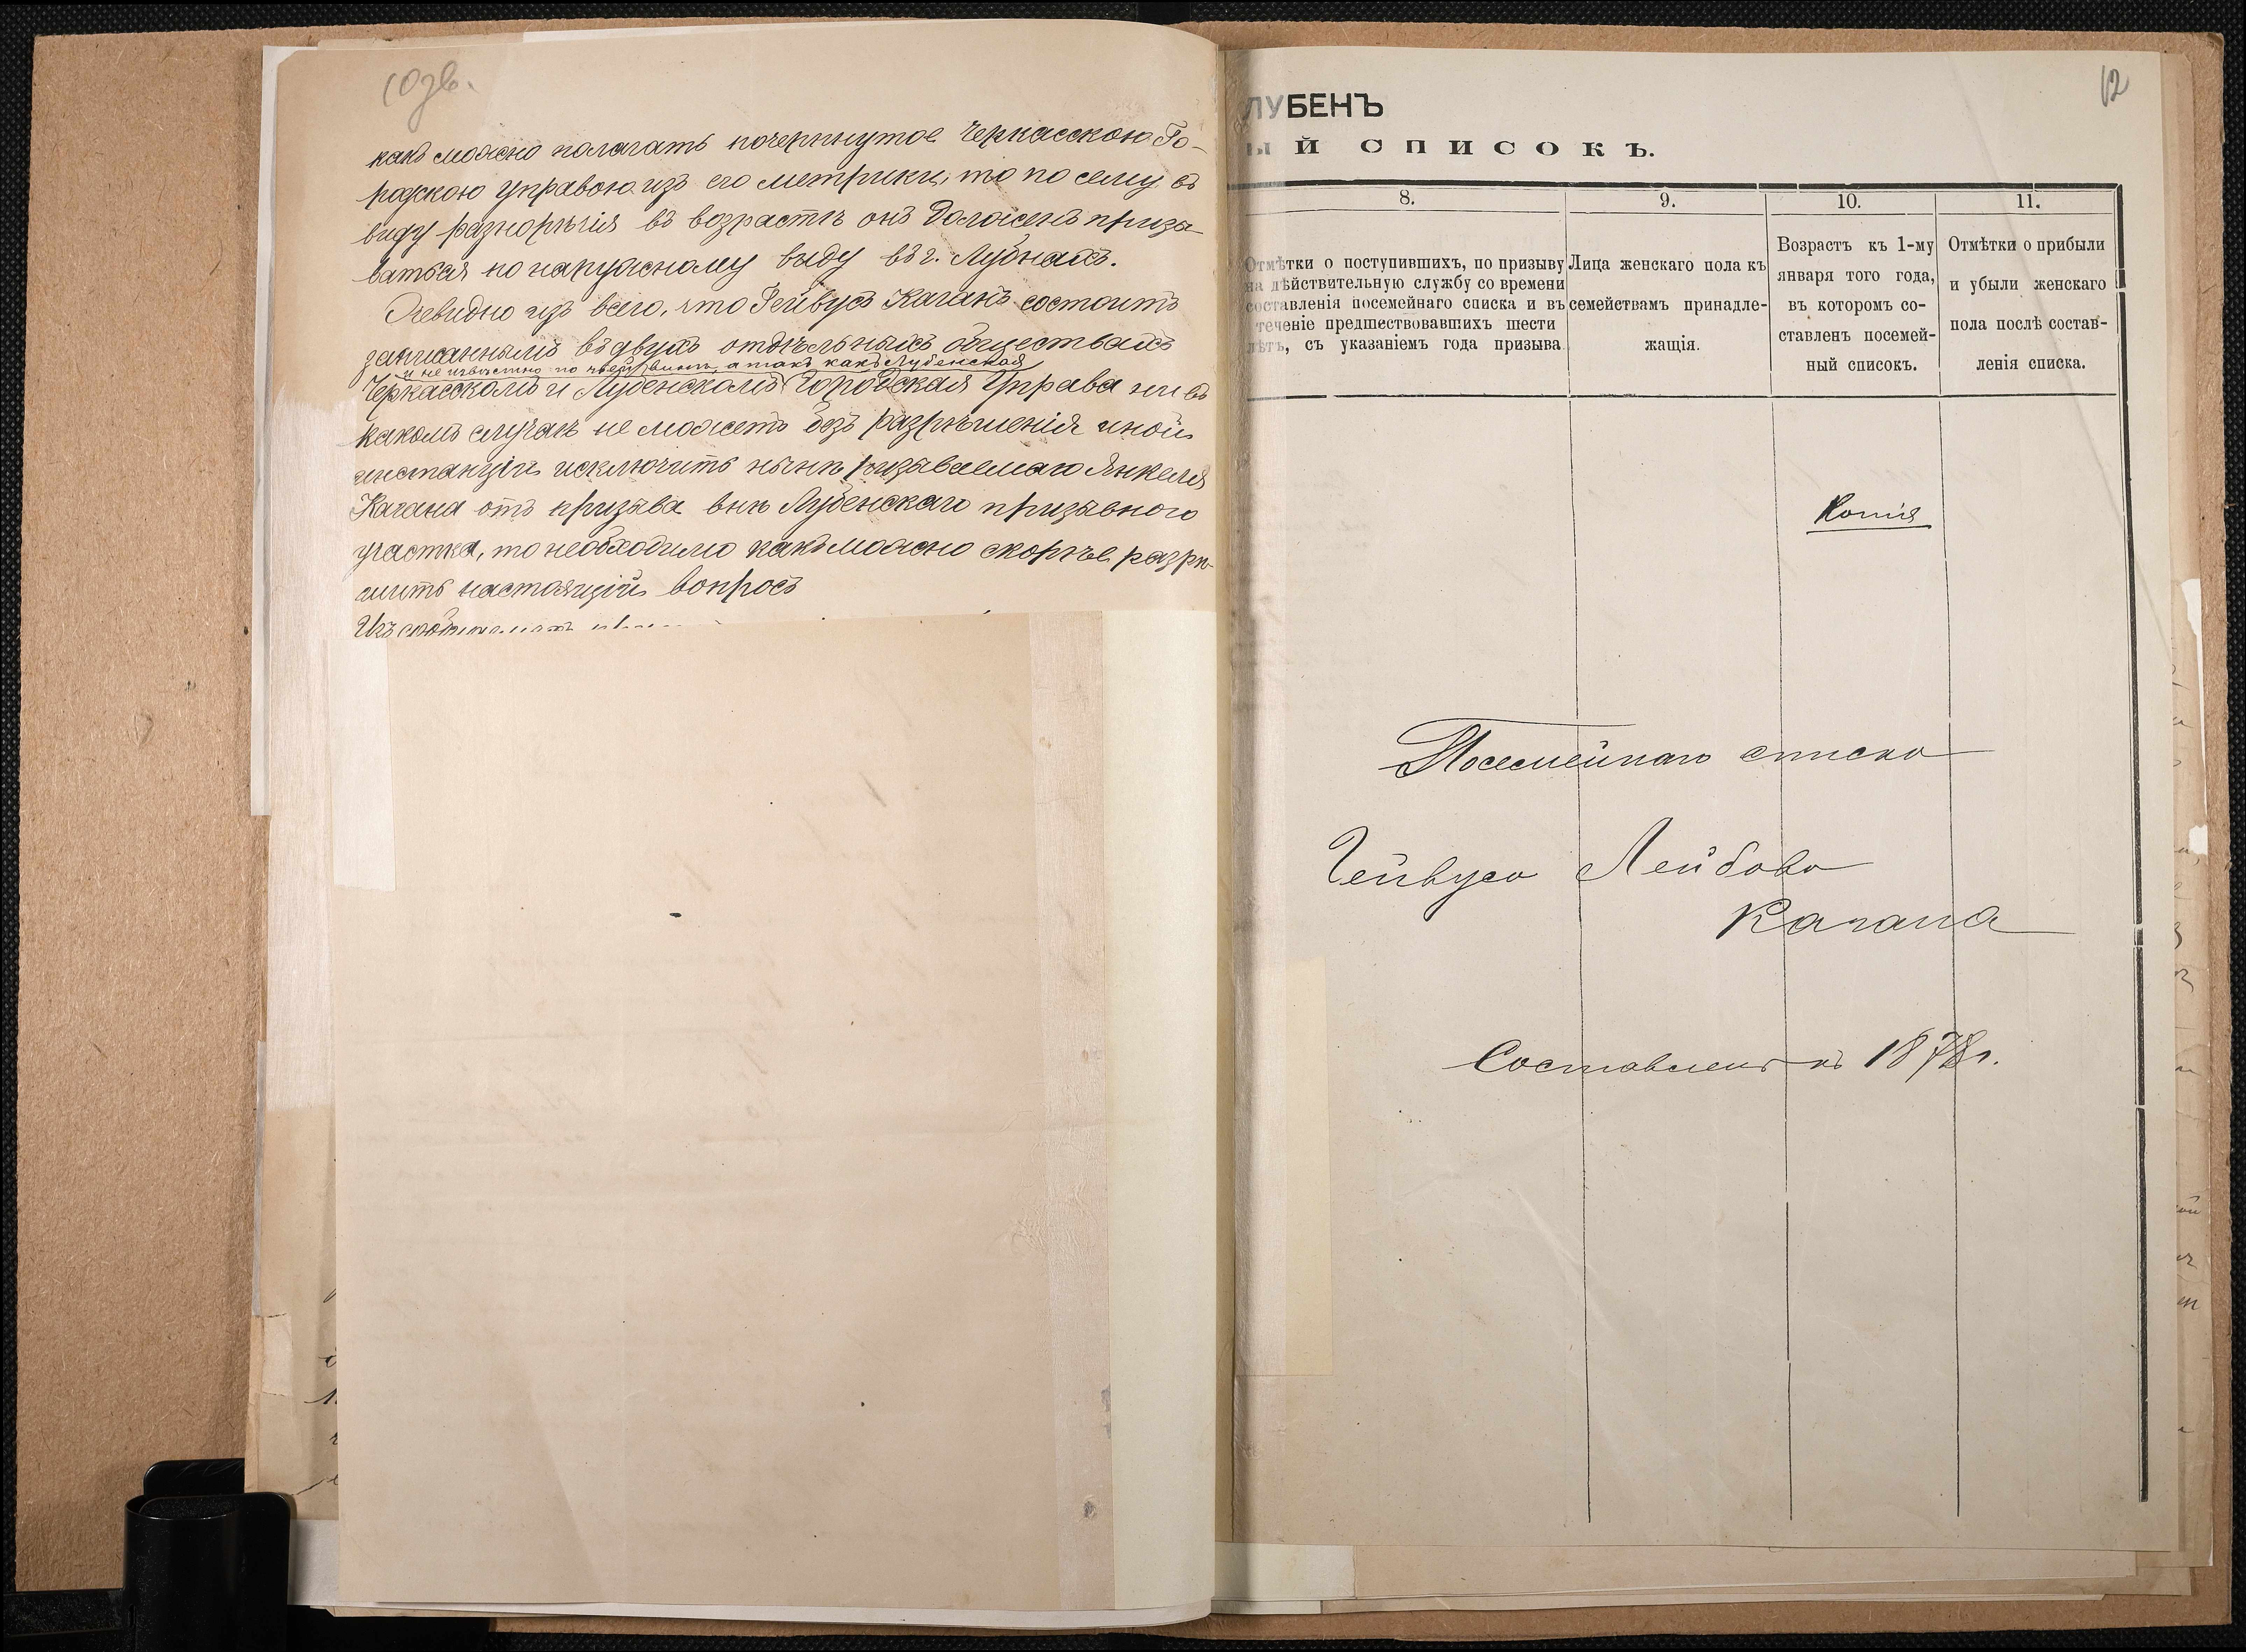 10зв.
какъ можно полагать почерпнутое Черкасскою Го-
родскою Управою изъ его метрики, то по сему въ
виду разнорѣчія въ возрастѣ онъ долженъ призы-
ваться по наружному виду въ г. Лубнахъ.
Очевидно изъ всего, что Гейвусъ Каганъ состоитъ
записаннымъ въ двухъ отдѣльныхъ обществахъ
и не извѣстно по чьей винѣ, а такъ какъ Лубенская
Черкасскомъ и Лубенскомъ Городская Управа ни въ
какомъ случаѣ не можетъ безъ разрѣшенія иной
инстанціи исключить нынѣ призываемаго Янкеля
Кагана отъ призыва внѣ Лубенскаго призывного
участка, то необходимо какъ можно скорѣе разрѣ-
шить настоящій вопросъ
Изъ
12
ЛУБЕНЪ
ый списокъ.
8.
9.
10.
11.
Отмѣтки о поступившихъ, по призыву
на дѣйствительную службу со времени
составленія посемейнаго списка и въ
теченіе предшествовавшихъ шести
лѣтъ, съ указаніемъ года призыва.
Лица женскаго пола къ
семействамъ принадле-
жащія.
Возрастъ къ 1-му
января того года,
въ которомъ со-
ставленъ посемей-
ный списокъ.
Отмѣтки о прибыли
и убыли женскаго
пола послѣ состав-
ленія списка.
Копія
Посемейнаго списка
Гейвуса Лейбова
Кагана
Составленъ въ 1878 г.